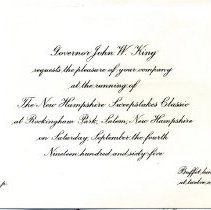 Governor John W. King
requests the pleasure of your company
at the running of
The New Hampshire Sweepstakes Classic
at Rockingham Park, Salem, New Hampshire
on Saturday, September the fourth
Nineteen hundred and sixty-five
Buffet
p.
at twelve